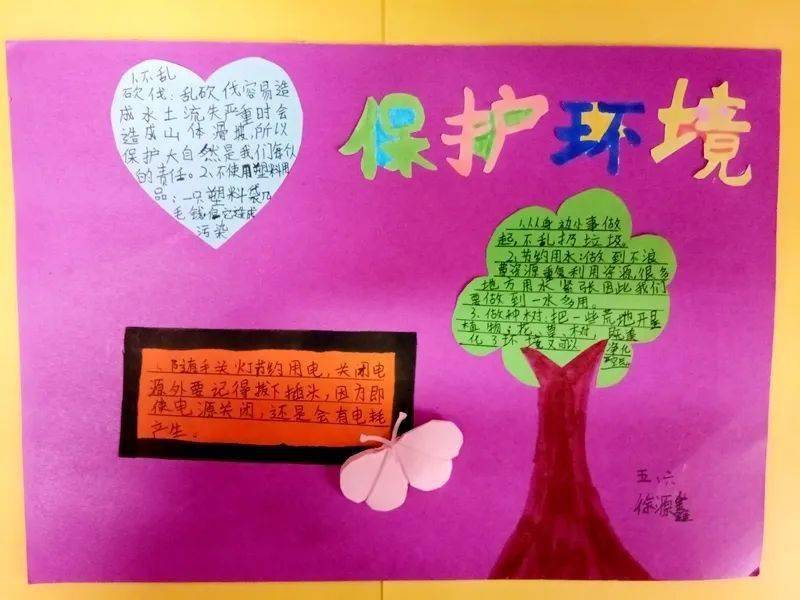 保护环境
1.不乱
砍伐：乱砍伐容易造
成水土流失严重时会
造成山体滑坡,所以
保护大自然是我们每个人
的责任。2、不使用塑料用
品：一只塑料袋几
毛钱,但它造成
污染
1.从身边小事做
起,不乱扔垃圾。
2.节约用水：做到不浪
费资源重复利用资源,很多
地方用水紧张因此我们
要做到一水多用。
3.做种树,把一些荒地开垦
植物：花、草、树,既美
化了环境又可以
净化
空气
、随手关灯节约用电，关闭电
源外要记得拔下插头，因为即
使电源关闭，还是会有电耗
产生。
五.六
徐源鑫